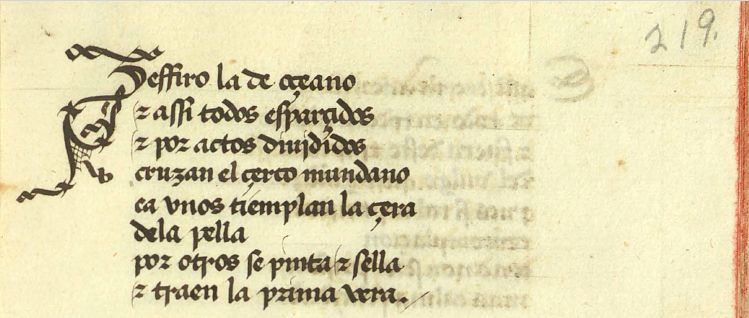 219.
Zeffiro la de oçeano
⁊ assi todos esparçidos
⁊ por actos diuididos
cruzan el çerco mundano
ca vnos tiemplan la çera
dela pella
por otros se pinta ⁊ sella
⁊ traen la prima vera.